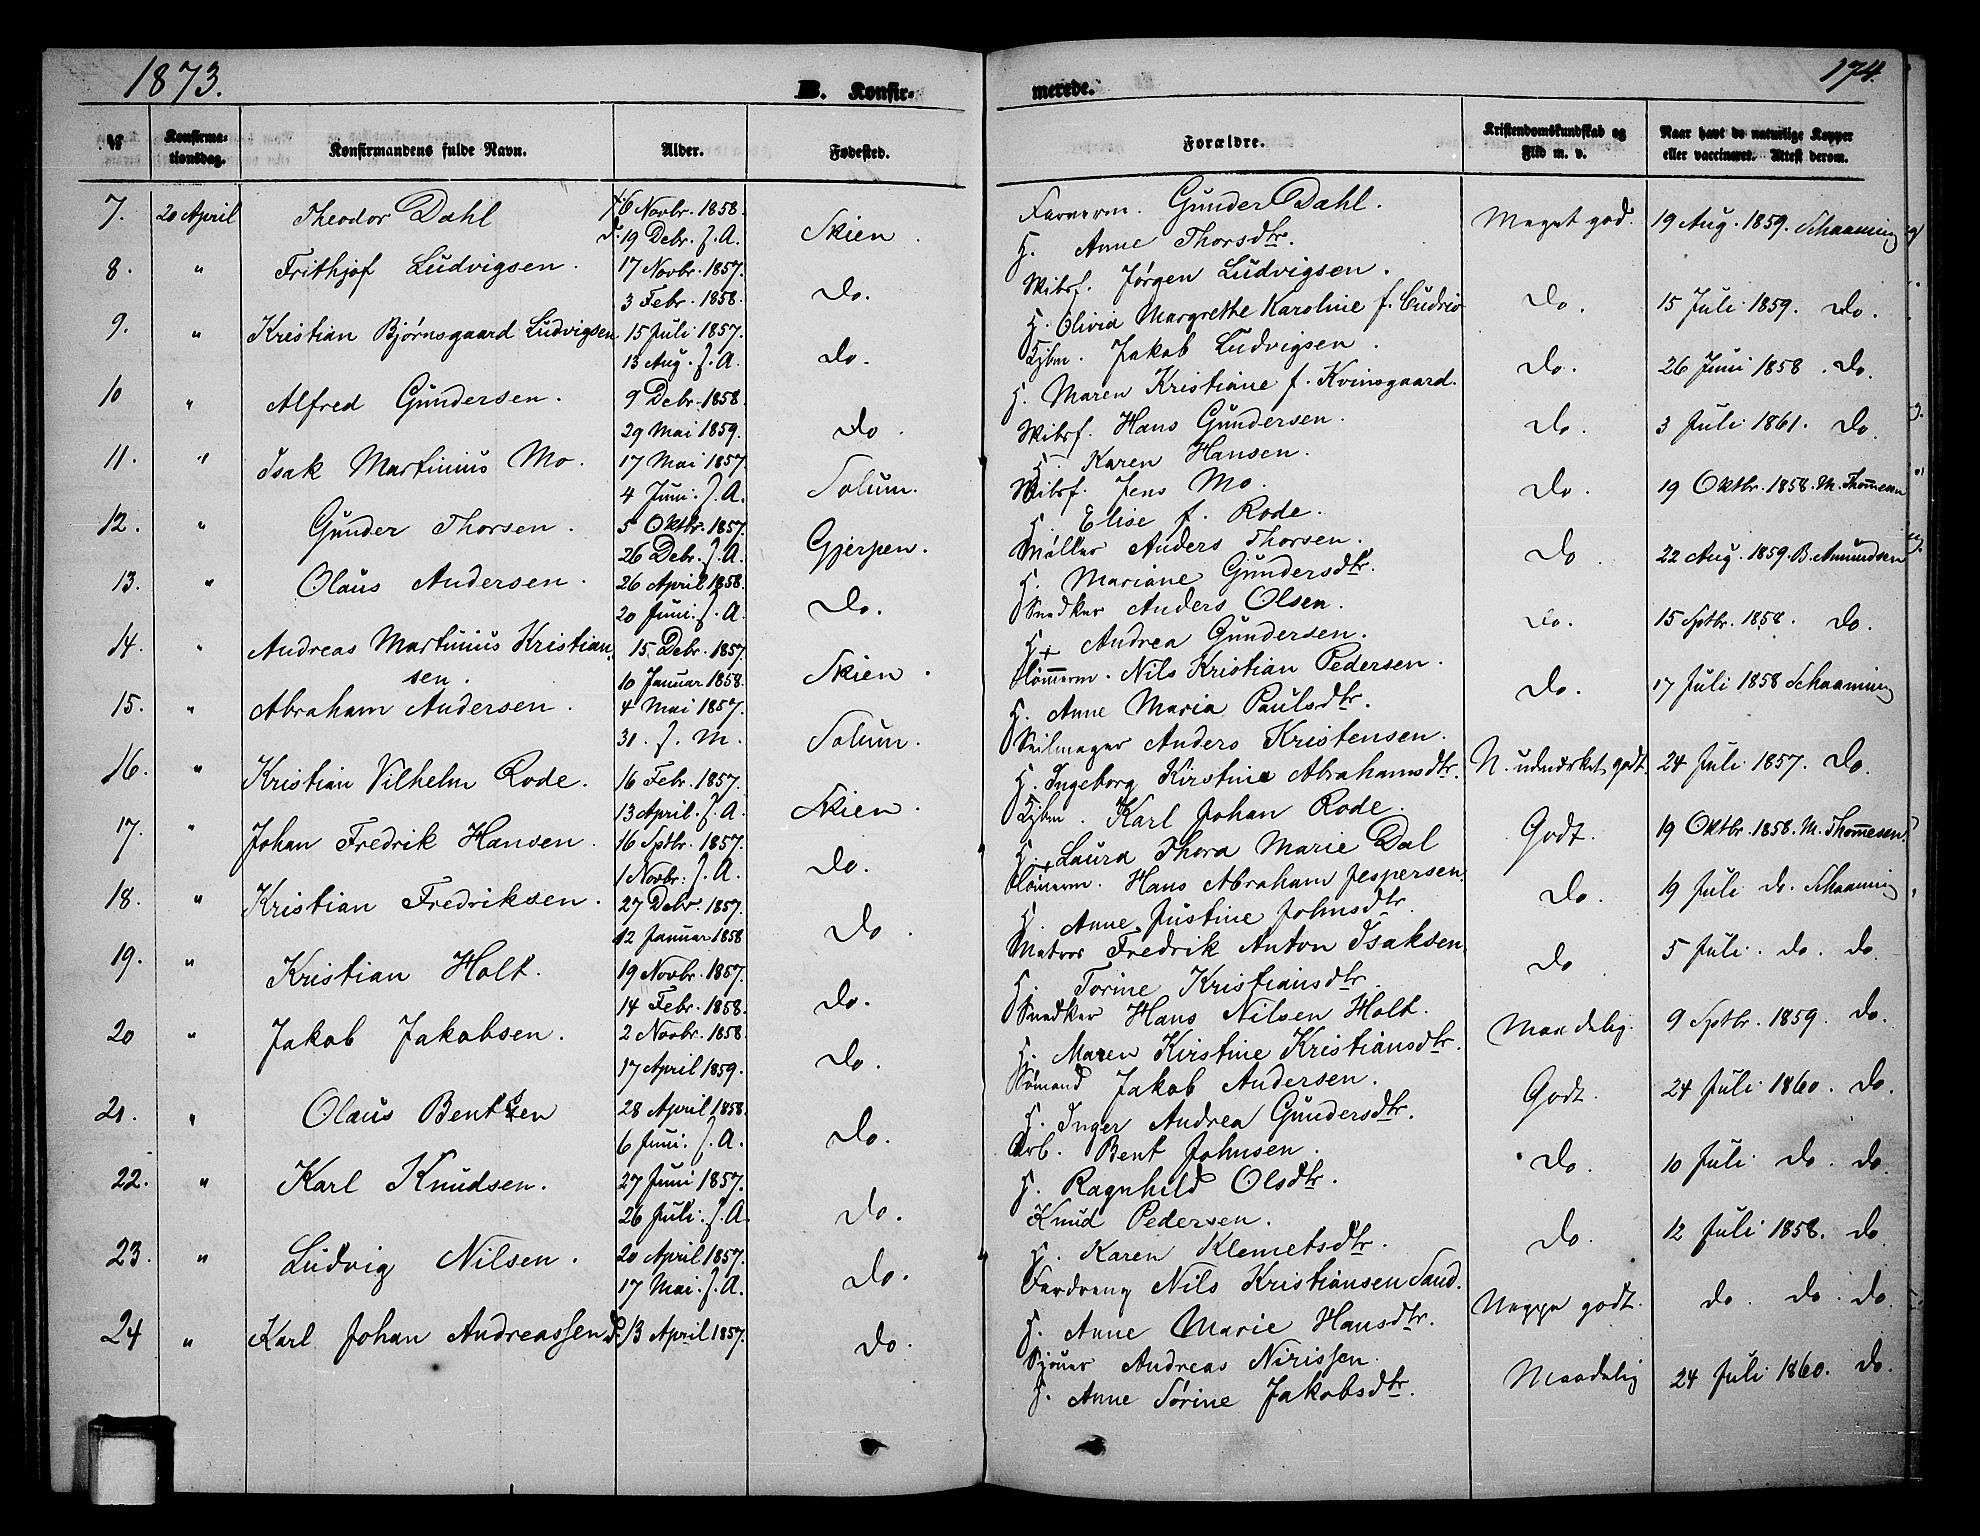 1873.
B. Konfir-
merede.
174.
№
Konfirma-
tionsdag.
Konfirmandens fulde Navn.
Alder.
Fødested.
Forældre.
Kristendomskundskab og
Flid m. v.
Naar havt de naturlige Kopper
eller vaccineret. Attest derom.
7. 20 April Theodor Dahl f. 6 Novbr. 1858. d. 19 Debr. s. A. Skien. Farverm. Gunder Dahl. H. Anne Thorsdtr. Meget god. 19 Aug. 1859. Schaaning
8. " Frithjof Ludvigsen. 17 Novbr. 1857. 3 Febr. 1858. Do. Skibsf. Jørgen Ludvigsen. H. Olivia Margrethe Karoline f. Cudrio Do. 15 Juli 1859. Do.
9. " Kristian Bjørnsgaard Ludvigsen 15 Juli 1857. 13 Aug. s. A. Do. Kjbm. Jakob Ludvigsen. H. Maren Kristiane f. Kvinsgaard. Do. 26 Juni 1858. Do.
10 " Alfred Gundersen. 9 Debr. 1858. 29 Mai 1859. Do. Skibsf. Hans Gundersen. H. Karen Hansen. Do. 3 Juli 1861. Do.
11. " Isak Martinius Mo. 17 Mai 1857. 4 Juni. s. A. Solum. Skibsf. Jens Mo. H. Elise f. Rode. Do. 19 Oktbr. 1858. M. Thomesen
12. " Gunder Thorsen. 5 Oktbr. 1857. 26 Debr. s. A. Gjerpen. Møller Anders Thorsen. H. Mariane Gundersdtr. Do 22 Aug. 1859. B. Amundsen
13. " Olaus Andersen. 26 April 1858. 20 Juni. s. A. Do. Snedker Anders Olsen. H. Andrea Gundersen. Do. 15 Sptbr. 1858. Do.
14. " Andreas Martinius Kristian-
sen. 15 Debr. 1857. 10 Januar 1858. Skien. Tømerm. Nils Kristian Pedersen. H. Anne Maria Paulsdtr. Do. 17 Juli 1858 Schaaning
15. " Abraham Andersen. 4 Mai 1857. 31. s. M. Solum. Seilmager Anders Kristensen. H. Ingeborg Kirstine Abrahamsdtr. N. udmærket godt. 24 Juli 1857. Do.
16. " Kristian Vilhelm Rode. 16 Febr. 1857. 13 April. s. A. Skien. Kjbm. Karl Johan Rode. H. Laura Thora Marie Dal Godt. 19 Oktbr. 1858. M. Thomesen
17. " Johan Fredrik Hansen. 16 Sptbr. 1857. 1 Novbr. s. A. Do. Tømerm. Hans Abraham Jespersen. H. Anne Justine Johnsdtr. Do. 19 Juli do. Schaaning
18. " Kristian Fredriksen. 27 Debr. 1857. 12 Januar 1858 Do. Matros Fredrik Anton Isaksen. H. Torine Kristiansdtr. Do 5 Juli. do. do
19. " Kristian Holt. 19 Novbr. 1857. 14 Febr. 1858. Do. Snedker Hans Nilsen Holt. H. Maren Kirstine Kristiansdtr. Maadelig. 9 Sptbr. 1859. Do.
20 " Jakob Jakobsen. 2 Novbr. 1858. 17 April 1859. Do. Sømand Jakob Andersen. H. Inger Andrea Gundersdtr. Godt. 24 Juli 1860. Do.
21. " Olaus Bentsen 28 April 1858. 6 Juni. s. A. Do. Arb. Bent Johnsen. H. Ragnhild Olsdtr. Do. 10 Juli do. do.
22. " Karl Knudsen. 27 Juni 1857. 26 Juli. s. A. Do. Knud Pedersen. H. Karen Klemetsdtr. Do. 12 Juli 1858. do
23. " Ludvig Nilsen. 20 April 1857. 17 Mai. s. A. Do. Nils Kristiansen Sand. H. Anne Marie Hansdtr. Neppe godt. do. do. do.
24 " Karl Johan Andreassen d. 13 April 1857. Do. Sjouer Andreas Nirissen. H. Anne Sørine Jakobsdtr. Maadelig 24 Juli 1860. Do.